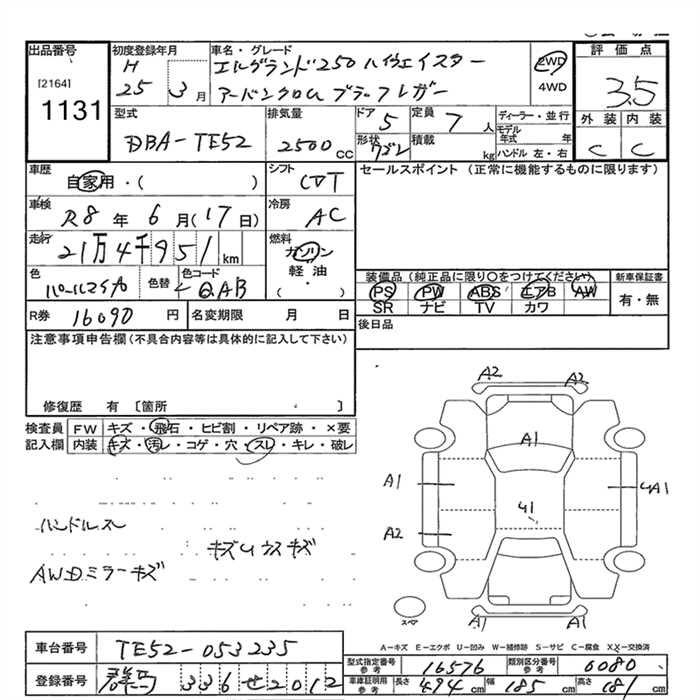 出品番号
[2164]
1131
初度登録年月
H
25 3月
車名・グレード
エルグランド250ハイウェイスター
アーバンクロム ブラックレザー
2WD
4WD
評価点
3.5
外装 内装
C C
型式
DBA-TE52
排気量
2500 CC
ドア 5
形状 ワゴン
定員 7人
積載 kg
ディーラー・並行
モデル年式 年
ハンドル 左・右
車歴
自家用・( )
シフト
CVT
セールスポイント (正常に機能するものに限ります)
車検
R8年6月(17日)
冷房
AC
走行
21万4千951km
燃料
ガソリン
軽油
・( )
色
パールマイカ
色替
色コード
QAB
装備品(純正品に限り○をつけてください)
PS PW ABS エアB AW
SR ナビ TV カワ
新車保証書
有・無
R券 16090円
名変期限 月 日
後日品
注意事項申告欄(不具合内容等は具体的に記入して下さい)
修復歴 有 〔箇所 〕
検査員 記入欄
FW キズ・飛石・ヒビ割・リペア跡・×要
内装 キズ・汚レ・コゲ・穴・スレ・キレ・破レ
ハンドルスレ
キズUウスキズ
AWDミラーキズ
A2 A2
A1
A1 A1
A2
A2 A2
スペア
A-キズ E-エクボ U-凹み W-補修跡 S-サビ C-腐食 XX-交換済
車台番号 TE52-053235
登録番号 群馬 336せ2012
型式指定番号 参考 16576
類別区分番号 参考 0080
車庫証明用 参考 長さ 494cm 幅 185cm 高さ 181cm